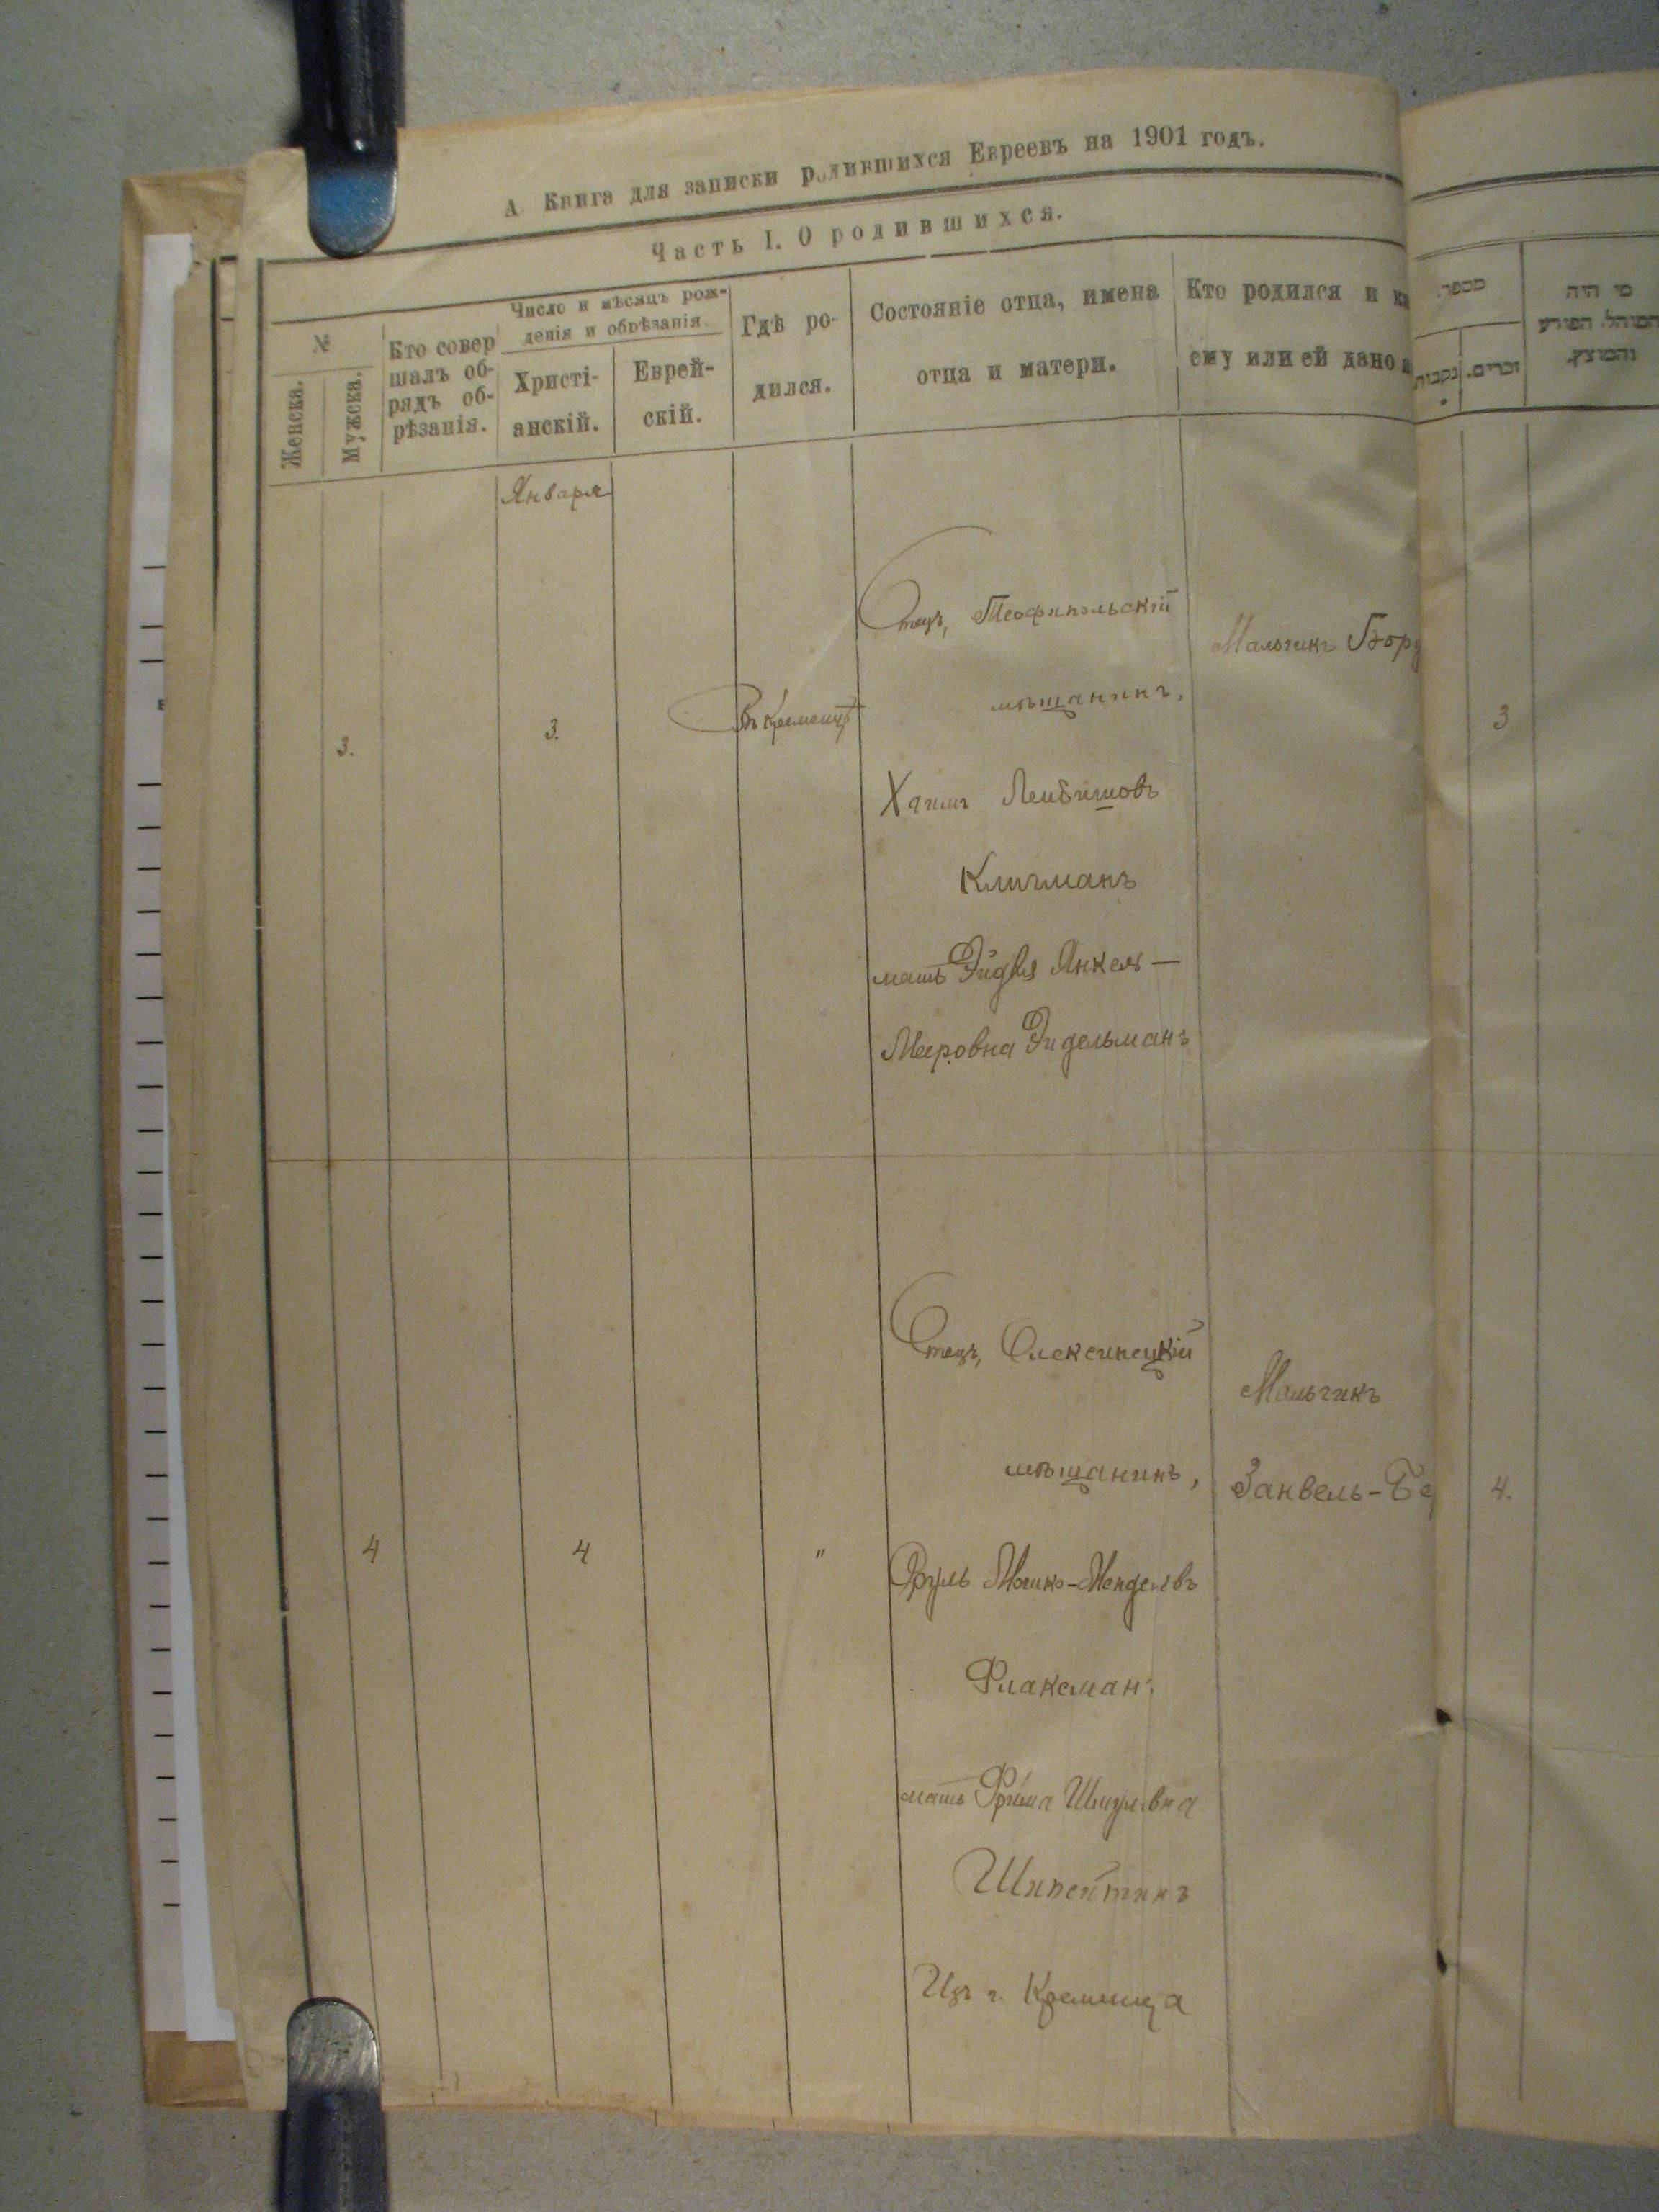 А. Книга для записки родившихся Евреевъ на 1901 годъ.
Часть I. О родившихся.
№
Женска.
Мужска.
Кто совер
шалъ об-
рядъ об-
рѣзанія.
Число и мѣсяцъ рож-
денія и обрѣзанія.
Христі-
анскій.
Еврей-
скій.
Гдѣ ро-
дился.
Состояніе отца, имена
отца и матери.
Кто родился и
ему или ей дано
מספר.
נקבות
זכרים.
מי היה
המוהל הפורע
והמוצץ.
Января
3.
3.
Въ Кременцѣ
Отецъ, Теофипольскій
мѣщанинъ,
Хаимъ Лейбишовъ
Клигманъ
мать Эйдля Янкель—
Меровна Эйдельманъ
Мальчикъ
3
4
4
"
Отецъ, Олексинецкій
мѣщанинъ,
Сруль Мошко-Менделевъ
Флаксманъ
мать Фрима Шмулевна
Изъ г. Кременца
Мальчикъ
Занвель-
4.